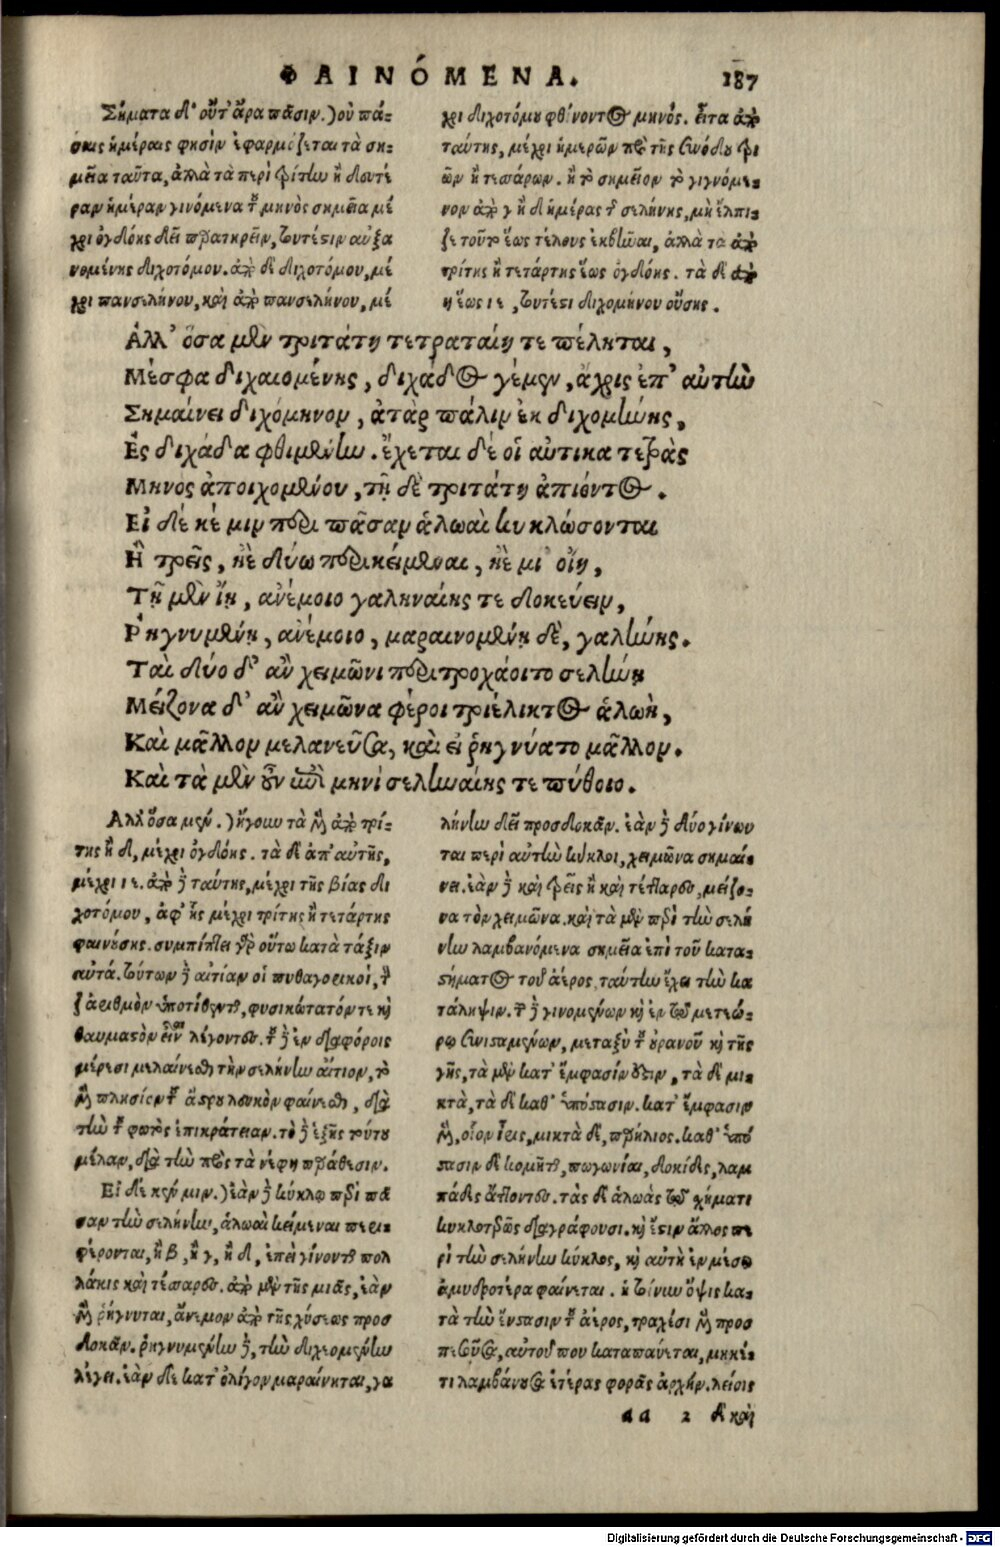 ΦΑΙΝΌΜΕΝΑ.
187
Σήματα δ' οὔτ' ἄρα πᾶσιν.) οὐ πά-
σαις ἡμέραις φησὶν ἐφαρμόζεται τὰ ση-
μεῖα ταῦτα, ἀλλὰ τὰ περὶ τρίτην ἢ δευτέ
ραν ἡμέραν γινόμενα τοῦ μηνὸς σημεῖα μέ
χρι ὀγδόης δεῖ παρατηρεῖν, τουτέστιν αὐξα
νομένης διχοτόμου. ἀπὸ δὲ διχοτόμου, μέ
χρι πανσελήνου, καὶ ἀπὸ πανσελήνου, μέ
χρι διχοτόμου φθίνοντος μηνός. εἶτα ἀπὸ
ταύτης, μέχρι ἡμερῶν πρὸ τῆς συνόδου τρι
ῶν ἢ τεσσάρων. ἢ τὸ σημεῖον τὸ γιγνόμε-
νον ἀπὸ γ ἢ δ ἡμέρας τῆς σελήνης, μὴ ἔλπι-
ζε τοῦτο ἕως τέλους ἐκβῆναι, ἀλλὰ τὰ ἀπὸ
τρίτης ἢ τετάρτης ἕως ὀγδόης. τὰ δὲ ἀπὸ
η ἕως ιε, τουτέστι διχομήνου οὔσης.
Ἀλλ' ὅσα μὲν τριτάτη τετραταίη τε πέληται,
Μέσφα διχαιομένης, διχάδος γέ μεν, ἄχρις ἐπ' αὐτὴν
Σημαίνει διχόμηνον, ἀτὰρ πάλιν ἐκ διχομήνης,
Ἐς διχάδα φθιμένην. ἔχεται δέ οἱ αὐτίκα τετρὰς
Μηνὸς ἀποιχομένου, τῇ δὲ τριτάτη ἀπιόντος.
Εἰ δέ κέ μιν περὶ πᾶσαν ἁλωαὶ κυκλώσονται
Ἢ τρεῖς, ἠὲ δύω περικείμεναι, ἠὲ μί' οἴη,
Τῇ μὲν ἴῃ, ἀνέμοιο γαληναίης τε δοκεύειν,
Ῥηγνυμένῃ, ἀνέμοιο, μαραινομένῃ δὲ, γαλήνης.
Ταὶ δύο δ' ἂν χειμῶνι περιτροχάοιτο σελήνη
Μείζονα δ' ἂν χειμῶνα φέροι τριέλικτος ἁλωὴ,
Καὶ μᾶλλον μελανεῦσα, καὶ εἰ ῥηγνύατο μᾶλλον.
Καὶ τὰ μὲν οὖν ἐπὶ μηνὶ σεληναίης τε πύθοιο.
Ἀλλ' ὅσα μέν.) ἤγουν τὰ μὲν ἀπὸ τρί-
της ἢ δ, μέχρι ὀγδόης. τὰ δὲ ἀπ' αὐτῆς,
μέχρι ιε. ἀπὸ δὲ ταύτης, μέχρι τῆς βίας δι
χοτόμου, ἀφ' ἧς μέχρι τρίτης ἢ τετάρτης
φαινούσης. συμπίπτει γὰρ οὕτω κατὰ τάξιν
αὐτά. τούτων δὲ αἰτίαν οἱ πυθαγορικοί, τὸν
ἀριθμὸν ὑποτίθενται, φυσικώτατόν τε καὶ
θαυμαστὸν εἶναι λέγοντες. τοῦ δὲ ἐν διαφόροις
μέρεσι μελαίνεσθαι τὴν σελήνην αἴτιον, τὸ
μὲν πλησίον τοῦ ἄστρου λευκὸν φαίνεσθαι, διὰ
τὴν τοῦ φωτὸς ἐπικράτειαν. τὸ δὲ ἑξῆς τούτου
μέλαν, διὰ τὴν πρὸς τὰ νέφη παράθεσιν.
Εἰ δέ κέν μιν.) ἐὰν δὲ κύκλῳ περὶ πᾶ
σαν τὴν σελήνην, ἁλωαὶ κείμεναι περι
φέρονται, ἢ β, ἢ γ, ἢ δ, ἐπεὶ γίνονται πολ
λάκις καὶ τέσσαρες. ἀπὸ μὲν τῆς μιᾶς, ἐὰν
μὲν ῥήγνυται, ἄνεμον ἀπὸ τῆς χύσεως προσ
δοκᾶν. ῥηγνυμένην δὲ, τὴν διχιομένην
λέγει. ἐὰν δὲ κατ' ὀλίγον μαραίνηται, γα
λήνην δεῖ προσδοκᾶν. ἐὰν δὲ δύο γίνων
ται περὶ αὐτὴν κύκλοι, χειμῶνα σημαί-
νει. ἐὰν δὲ καὶ τρεῖς ἢ καὶ τέτταρες, μείζο-
να τὸν χειμῶνα. καὶ τὰ μὲν περὶ τὴν σελή
νην λαμβανόμενα σημεῖα ἐπὶ τοῦ κατα-
στήματος τοῦ ἀέρος, ταύτην ἔχει τὴν κα
τάληψιν. τῶν δὲ γινομένων καὶ ἐν τῷ μετεώ-
ρῳ συνισταμένων, μεταξὺ τοῦ οὐρανοῦ καὶ τῆς
γῆς, τὰ μὲν κατ' ἔμφασίν ἐστιν, τὰ δὲ μι-
κτά, τὰ δὲ καθ' ὑπόστασιν. κατ' ἔμφασιν
μὲν, οἷον ἶρις, μικτὰ δὲ, παρήλιος. καθ' ὑπό
στασιν δὲ κομῆται, πωγωνίαι, δοκίδες, λαμ
πάδες ἅπτονται. τὰς δὲ ἁλωὰς τῷ σχήματι
κυκλοτερῶς διαγράφουσι. καὶ ἔστιν ἄλλος πε
ρὶ τὴν σελήνην κύκλος, καὶ αὐτὴ ἐν μέσῳ
ἀμυδροτέρα φαίνεται. ἡ τοίνυν ὄψις κα-
τὰ τὴν ἔνστασιν τοῦ ἀέρος, τραχέσι μὲν προσ
πεσοῦσα, αὐτοῦ που καταπαύεται, μηκέ-
τι λαμβάνουσα ἑτέρας φορᾶς ἀρχήν. λείοις
aa 2 δὲ καὶ
Digitalisierung gefördert durch die Deutsche Forschungsgemeinschaft - DFG